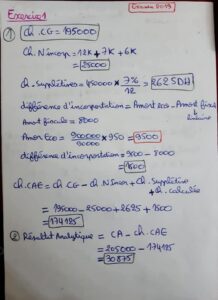 Examen 2019
Exercice 1
① Ch. CG = 195000
Ch. N'incorp = 12K + 7K + 6K
= 25000
Ch. Supplétives = 450000 × 7% / 12 = 2625DH
différence d'incorporation = Amort eco - Amort fiscal
linéaire
Amort fiscale = 8000
Amor Eco = 900000 / 90000 × 950 = 9500
différence d'incorporation = 9500 - 8000
= 1500
Ch. CAE = Ch. CG - Ch. N'incor + Ch. Supplétive
+ Ch. calculée
= 195000 - 25000 + 2625 + 1500
= 174125
② Résultat Analytique = CA - Ch. CAE
= 205000 - 174125
= 30875